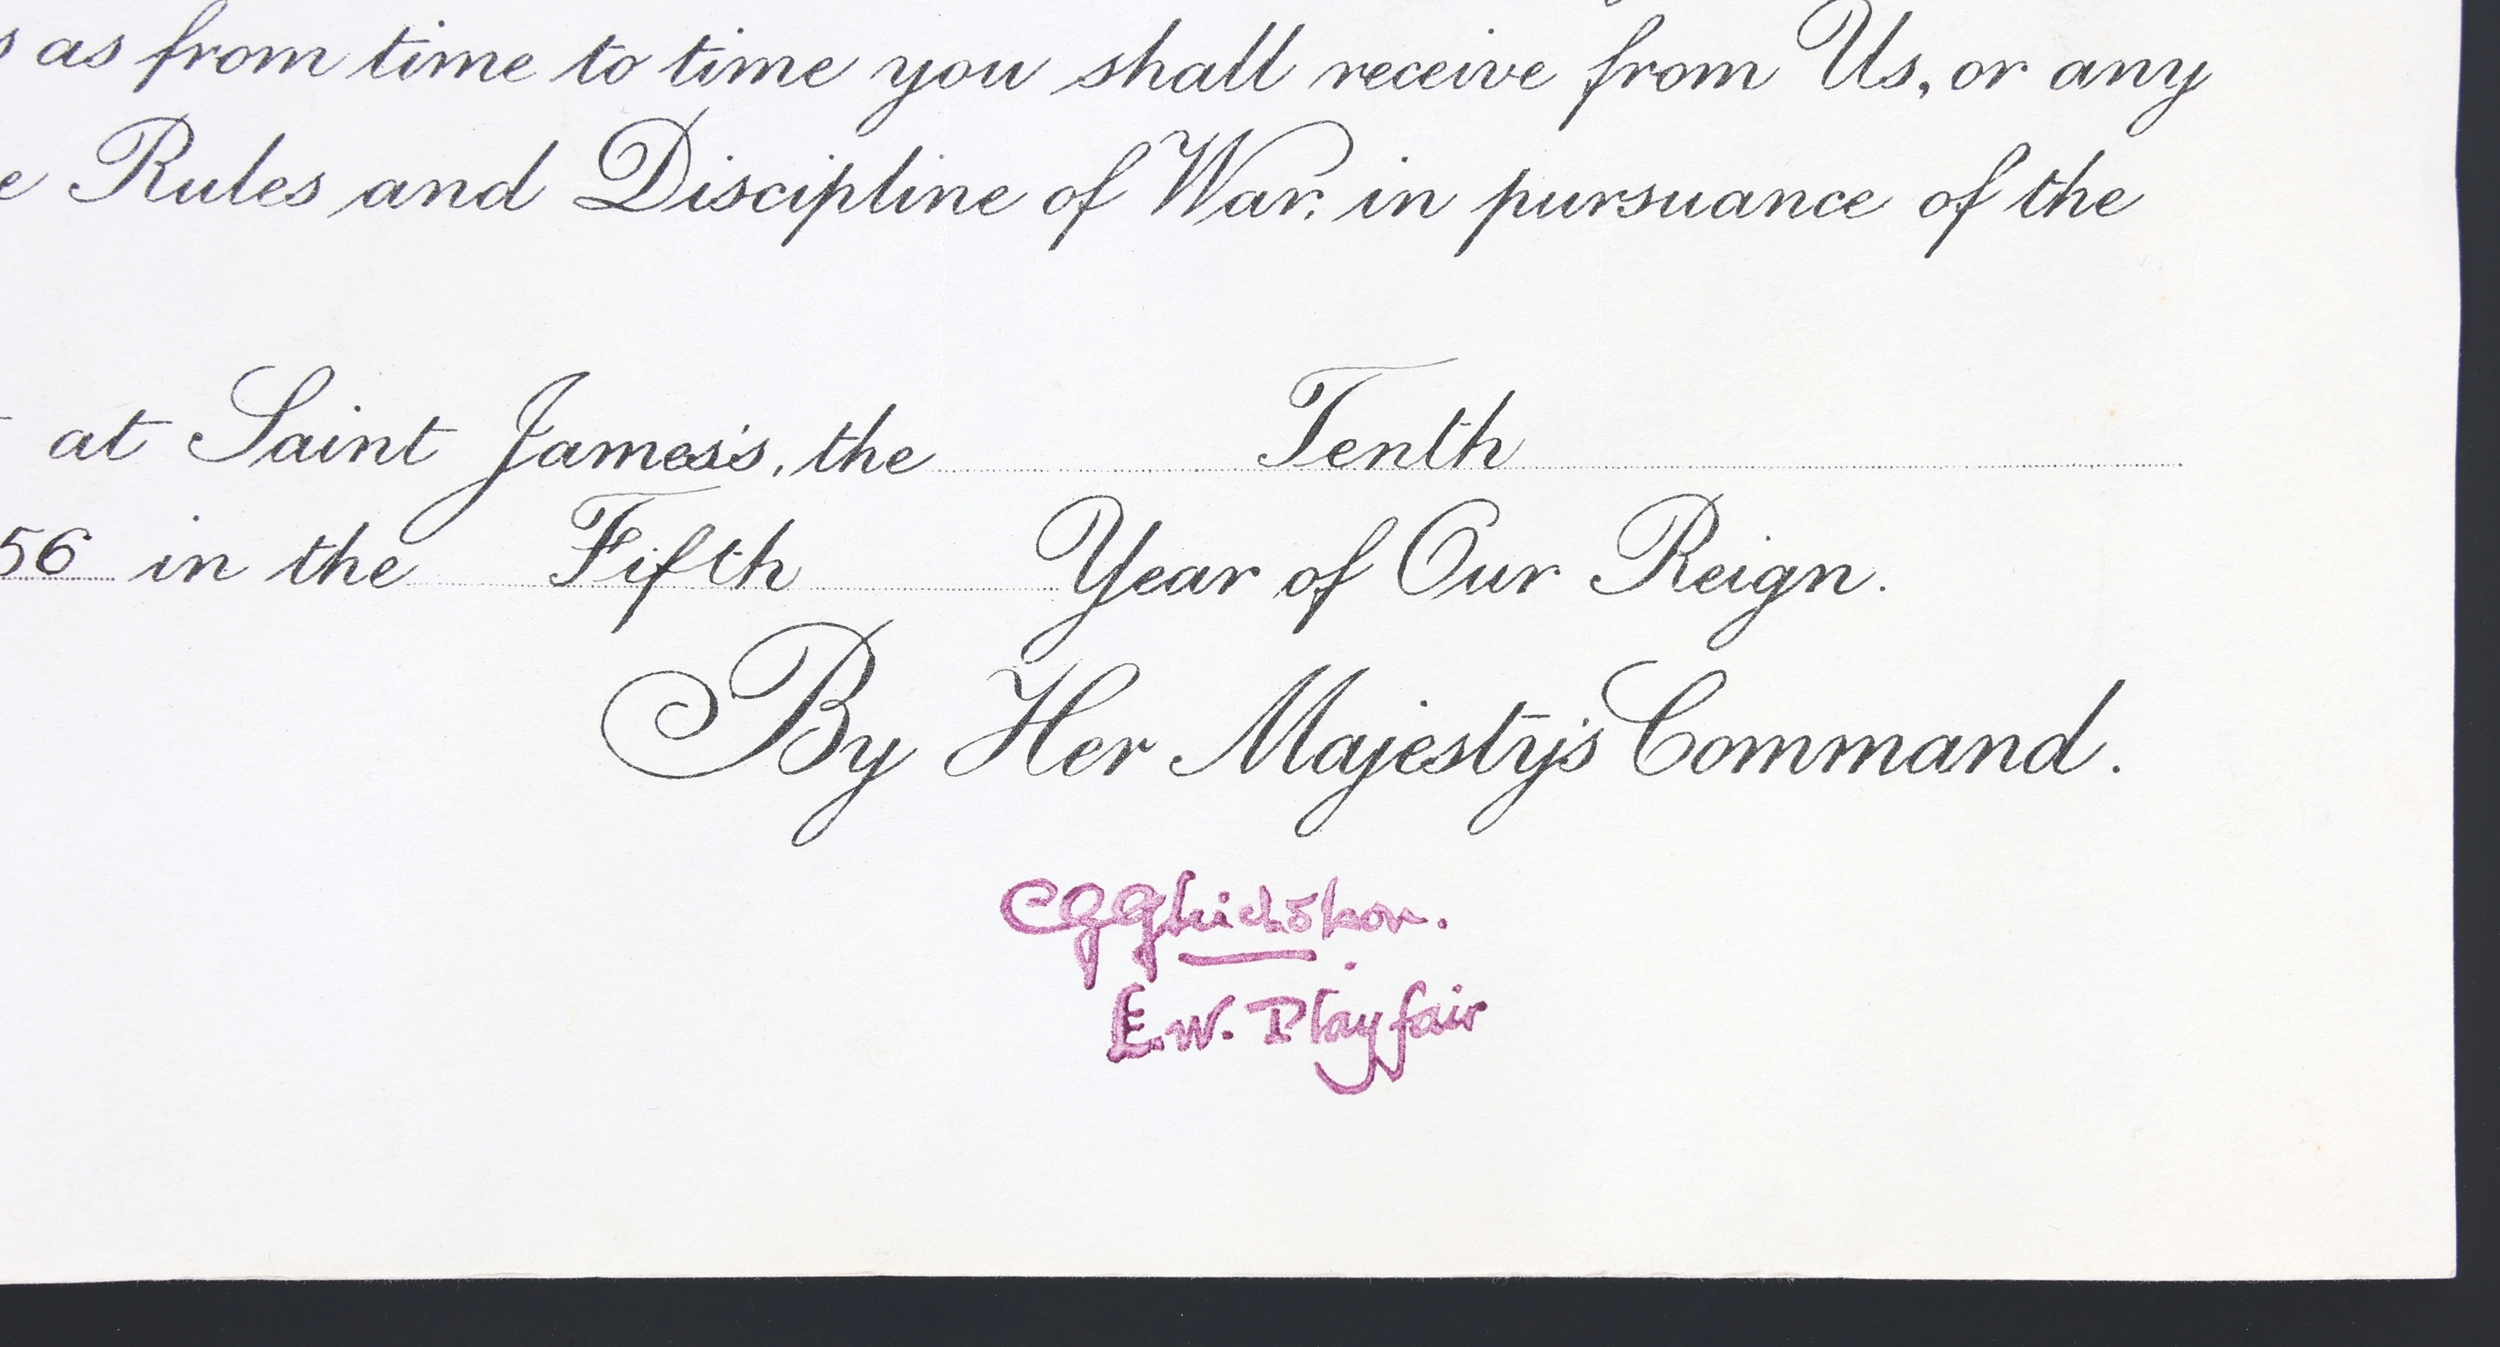 as from time to time you shall receive from Us, or any
Rules and Discipline of War, in pursuance of the
at Saint James's, the Tenth
56 in the Fifth Year of Our Reign.
By Her Majesty's Command.
E.W. Playfair